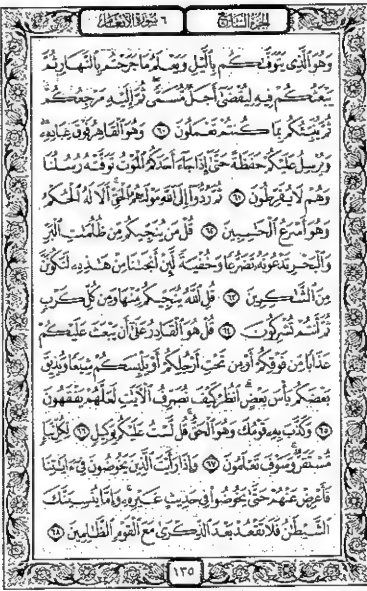 الجزء السابع ٦ سورة الأنعام
وَهُوَ ٱلَّذِى يَتَوَفَّىٰكُم بِٱلَّيْلِ وَيَعْلَمُ مَا جَرَحْتُم بِٱلنَّهَارِ ثُمَّ
يَبْعَثُكُمْ فِيهِ لِيُقْضَىٰٓ أَجَلٌ مُّسَمًّى ثُمَّ إِلَيْهِ مَرْجِعُكُمْ
ثُمَّ يُنَبِّئُكُم بِمَا كُنتُمْ تَعْمَلُونَ ٦٠ وَهُوَ ٱلْقَاهِرُ فَوْقَ عِبَادِهِۦ
وَيُرْسِلُ عَلَيْكُمْ حَفَظَةً حَتَّىٰٓ إِذَا جَآءَ أَحَدَكُمُ ٱلْمَوْتُ تَوَفَّتْهُ رُسُلُنَا
وَهُمْ لَا يُفَرِّطُونَ ٦١ ثُمَّ رُدُّوٓا۟ إِلَى ٱللَّهِ مَوْلَىٰهُمُ ٱلْحَقِّ أَلَا لَهُ ٱلْحُكْمُ
وَهُوَ أَسْرَعُ ٱلْحَٰسِبِينَ ٦٢ قُلْ مَن يُنَجِّيكُم مِّن ظُلُمَٰتِ ٱلْبَرِّ
وَٱلْبَحْرِ تَدْعُونَهُۥ تَضَرُّعًا وَخُفْيَةً لَّئِنْ أَنجَىٰنَا مِنْ هَٰذِهِۦ لَنَكُونَنَّ
مِنَ ٱلشَّٰكِرِينَ ٦٣ قُلِ ٱللَّهُ يُنَجِّيكُم مِّنْهَا وَمِن كُلِّ كَرْبٍ
ثُمَّ أَنتُمْ تُشْرِكُونَ ٦٤ قُلْ هُوَ ٱلْقَادِرُ عَلَىٰٓ أَن يَبْعَثَ عَلَيْكُمْ
عَذَابًا مِّن فَوْقِكُمْ أَوْ مِن تَحْتِ أَرْجُلِكُمْ أَوْ يَلْبِسَكُمْ شِيَعًا وَيُذِيقَ
بَعْضَكُم بَأْسَ بَعْضٍ ٱنظُرْ كَيْفَ نُصَرِّفُ ٱلْءَايَٰتِ لَعَلَّهُمْ يَفْقَهُونَ
٦٥ وَكَذَّبَ بِهِۦ قَوْمُكَ وَهُوَ ٱلْحَقُّ قُل لَّسْتُ عَلَيْكُم بِوَكِيلٍ ٦٦ لِّكُلِّ نَبَإٍ
مُّسْتَقَرٌّ وَسَوْفَ تَعْلَمُونَ ٦٧ وَإِذَا رَأَيْتَ ٱلَّذِينَ يَخُوضُونَ فِىٓ ءَايَٰتِنَا
فَأَعْرِضْ عَنْهُمْ حَتَّىٰ يَخُوضُوا۟ فِى حَدِيثٍ غَيْرِهِۦ وَإِمَّا يُنسِيَنَّكَ
ٱلشَّيْطَٰنُ فَلَا تَقْعُدْ بَعْدَ ٱلذِّكْرَىٰ مَعَ ٱلْقَوْمِ ٱلظَّٰلِمِينَ ٦٨
١٣٥